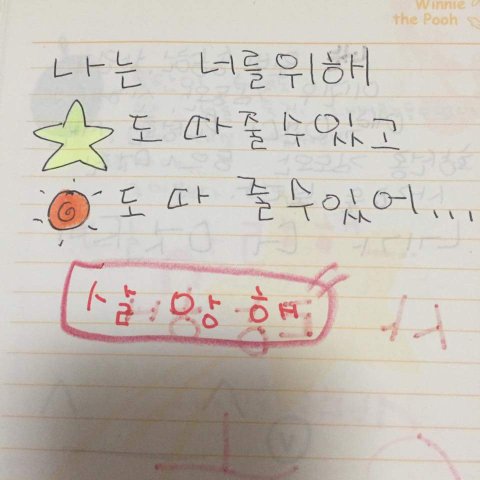 Winnie
the Pooh
나는 너를위해
도 따줄수있고
도 따 줄수있어...
살 앙 해